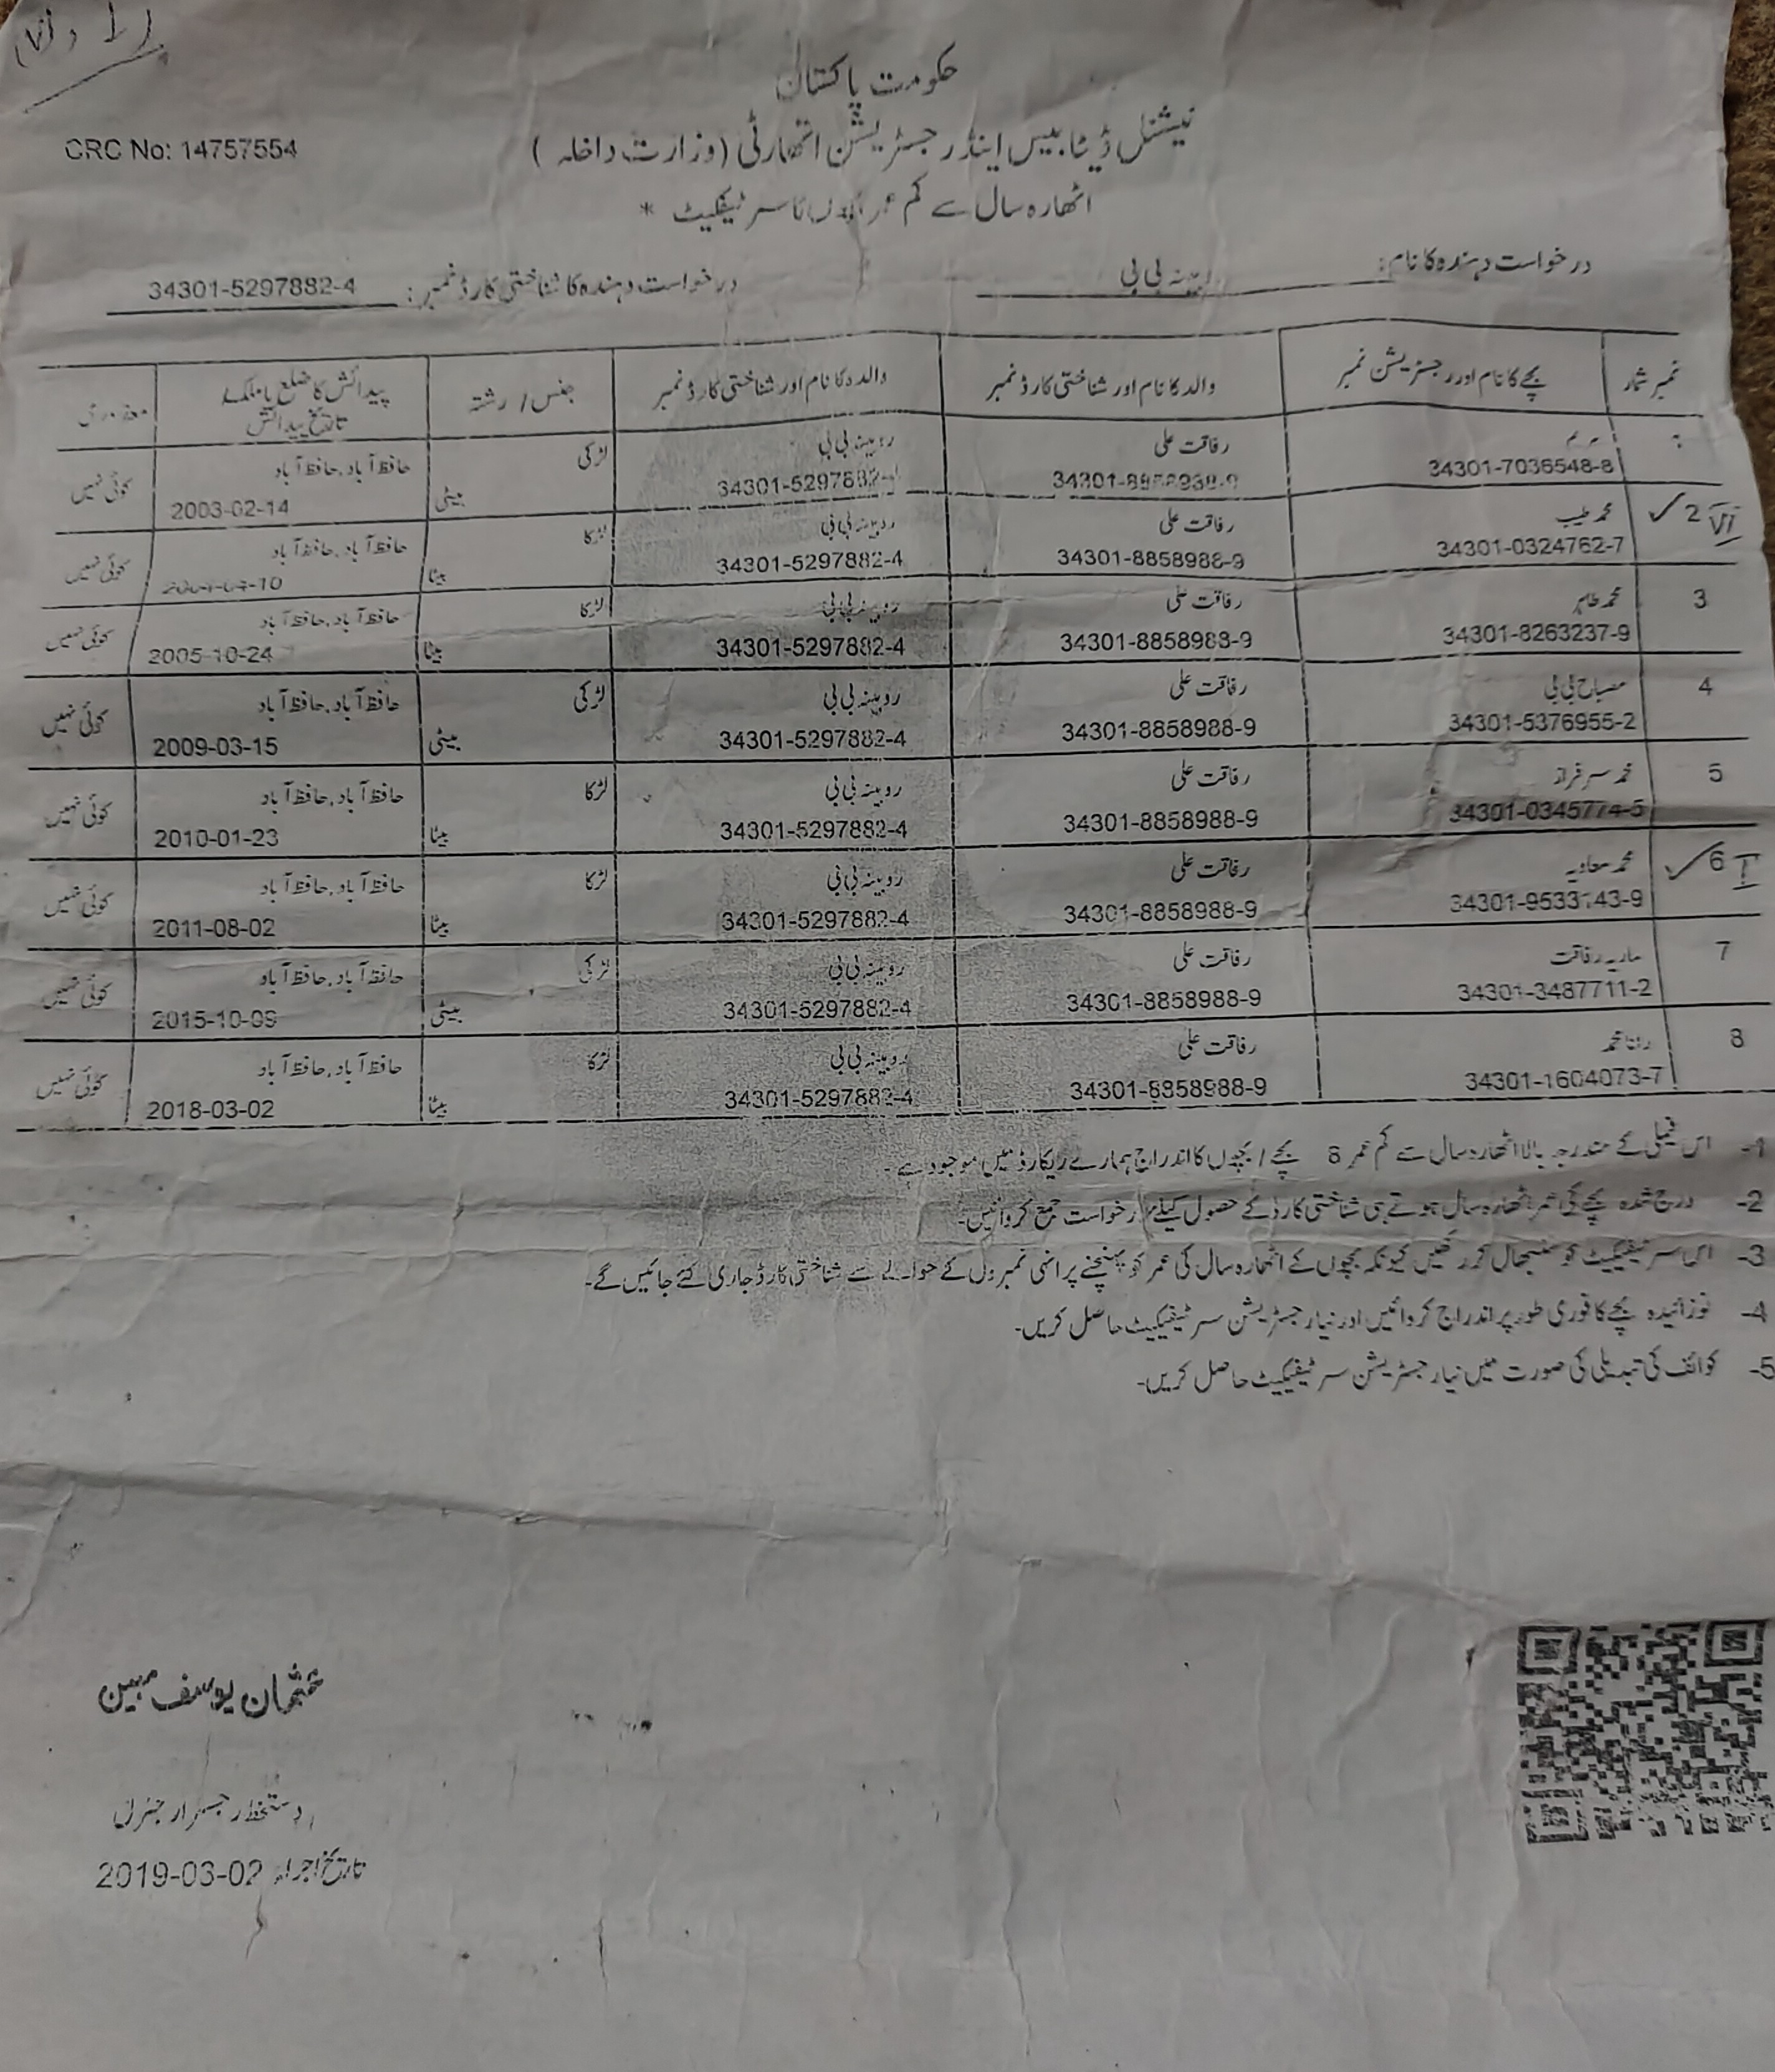 CRC No: 14757554
حکومت پاکستان
نیشنل ڈیٹا بیس اینڈ رجسٹریشن اتھارٹی (وزارت داخلہ)
اٹھارہ سال سے کم عمر سرٹیفکیٹ *
درخواست دہندہ کا نام: بی بی
درخواست دہندہ کا شناختی کارڈ نمبر: 34301-5297882-4
نمبر شمار بچے کا نام اور رجسٹریشن نمبر والد کا نام اور شناختی کارڈ نمبر والدہ کا نام اور شناختی کارڈ نمبر جنس / رشتہ پیدائش کا ضلع یا ملک / معذوری
تاریخ پیدائش
رفاقت علی روبینہ بی بی لڑکی حافظ آباد, حافظ آباد کوئی نہیں
34301-7036548-8 34301-5297882 بیٹی 2003-02-14
2 VI محمد طیب رفاقت علی روبینہ بی بی لڑکا حافظ آباد, حافظ آباد کوئی نہیں
34301-0324762-7 34301-8858988-9 34301-5297882-4 بیٹا
3 محمد طاہر رفاقت علی روبینہ بی بی لڑکا حافظ آباد, حافظ آباد کوئی نہیں
34301-8263237-9 34301-8858988-9 34301-5297882-4 بیٹا 2005-10-24
4 مصباح بی بی رفاقت علی روبینہ بی بی لڑکی حافظ آباد, حافظ آباد کوئی نہیں
34301-5376955-2 34301-8858988-9 34301-5297882-4 بیٹی 2009-03-15
5 محمد سرفراز رفاقت علی روبینہ بی بی لڑکا حافظ آباد, حافظ آباد کوئی نہیں
34301-0345774-5 34301-8858988-9 34301-5297882-4 بیٹا 2010-01-23
6 I محمد معاویہ رفاقت علی روبینہ بی بی لڑکا حافظ آباد, حافظ آباد کوئی نہیں
34301-8858988-9 34301-5297882-4 بیٹا 2011-08-02
7 ماریہ رفاقت رفاقت علی روبینہ بی بی لڑکی حافظ آباد, حافظ آباد کوئی نہیں
34301-3487711-2 34301-8858988-9 34301-5297882-4 بیٹی 2015-10-09
8 رفاقت علی روبینہ بی بی لڑکا حافظ آباد, حافظ آباد کوئی نہیں
34301-1604073-7 34301-8858988-9 34301-5297882-4 بیٹا 2018-03-02
1- اس فیملی کے مندرجہ بالا اٹھارہ سال سے کم عمر 8 بچے / بچوں کا اندراج ہمارے ریکارڈ میں موجود ہے -
2- درج شدہ بچے کی عمر اٹھارہ سال ہوتے ہی شناختی کارڈ کے حصول کیلئے درخواست جمع کروائیں۔
3- اس سرٹیفیکیٹ کو سنبھال کر رکھیں کیونکہ بچوں کے اٹھارہ سال کی عمر کو پہنچنے پر انہی نمبروں کے حوالے سے شناختی کارڈ جاری کئے جائیں گے۔
4- نوزائیدہ بچے کا فوری طور پر اندراج کروائیں اور نیا رجسٹریشن سرٹیفیکیٹ حاصل کریں۔
5- کوائف کی تبدیلی کی صورت میں نیا رجسٹریشن سرٹیفیکیٹ حاصل کریں۔
عثمان یوسف مبین
دستخط رجسٹرار جنرل
تاریخ اجراء 2019-03-02